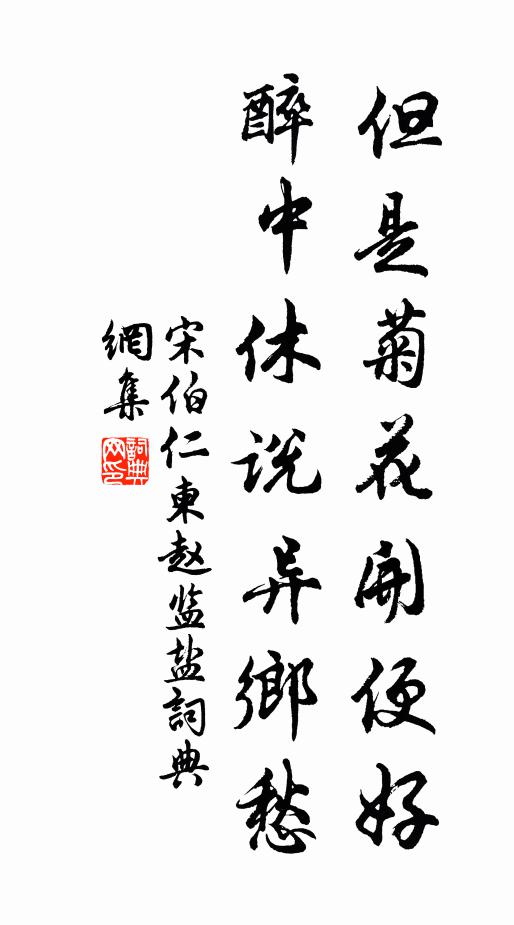 但是菊花開便好
醉中休说异鄉愁
宋伯仁東赵监盐詞典
網集
詞典网印